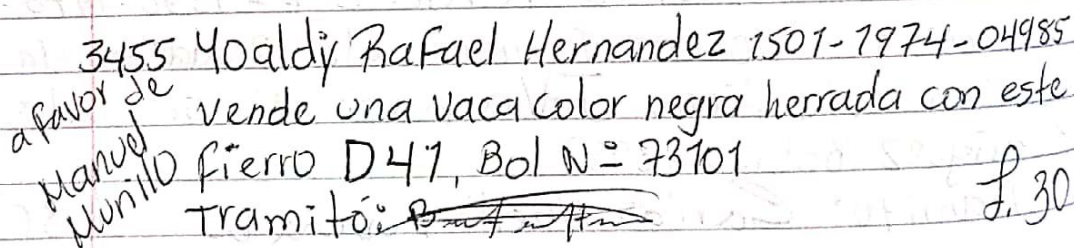 3455 Yoaldy Rafael Hernandez 1501-1974-04985
a favor de Manuel Murillo
vende una vaca color negra herrada con este
fierro D41, Bol Nº 73101
Tramitó:
L. 30